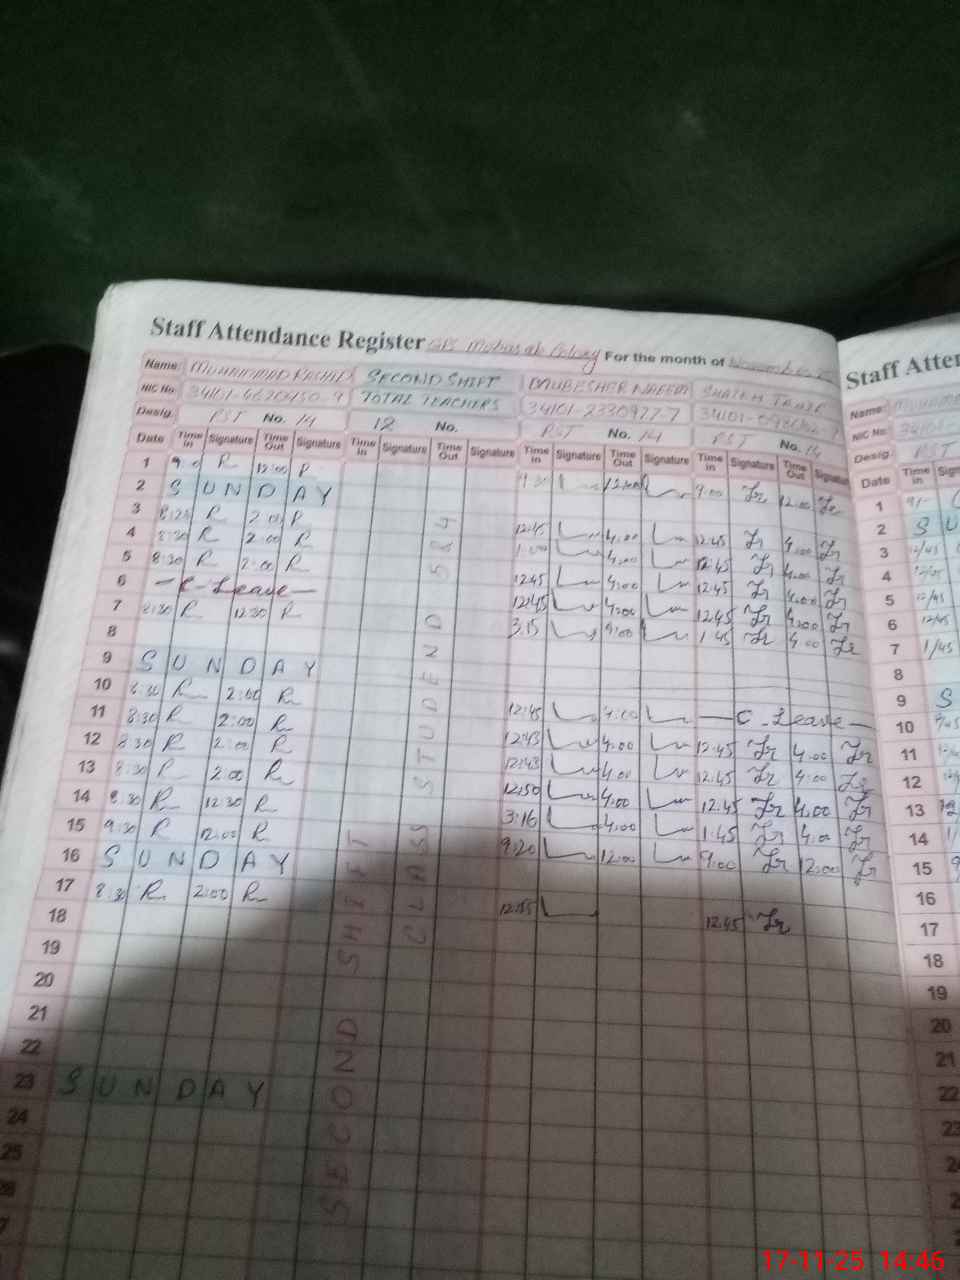 Staff Attendance Register For the month of November
Staff Atten
Name: MUHAMMAD RASHID SECOND SHIFT MUBESHER NAEEM
NIC No. TOTAL TEACHERS 34101-2330977-7
Desig. PST No. 14 12 No. PST No. 14 PST No. 14
Name:
NIC No.
Desig. PST
Date Time In Signature Time Out Signature Time In Signature Time Out Signature Time In Signature Time Out Signature Time In Signature Time Out Signature
Date Time In
1 9:0 R 12:00 R 9:30 12:00 9:00 Jr 12:00 Jr
2 SUNDAY
3 8:25 R 2:00 R 12:45 4:00 12:45 Jr 4:00 Jr
4 8:30 R 2:00 R 1:00 4:00 12:45 Jr 4:00 Jr
5 8:30 R 2:00 R 12:45 4:00 12:45 Jr 4:00 Jr
6 - C-Leave - 12:45 4:00 12:45 Jr 4:00 Jr
7 8:30 R 12:30 R 3:15 4:00 1:45 Jr 4:00 Jr
8
9 SUNDAY
10 8:30 R 2:00 R 12:45 4:00 - C-Leave -
11 8:30 R 2:00 R 12:43 4:00 12:45 Jr 4:00 Jr
12 8:30 R 2:00 R 12:43 4:00 12:45 Jr 4:00 Jr
13 8:30 R 2:00 R 12:50 4:00 12:45 Jr 4:00 Jr
14 8:30 R 12:30 R 3:16 4:00 1:45 Jr 4:00 Jr
15 9:30 R 12:00 R 9:20 12:00 9:00 Jr 12:00 Jr
16 SUNDAY
17 8:30 R 2:00 R 12:55 12:45 Jr
18
19
20
21
22
23 SUNDAY
24
25
SECOND SHIFT
CLASS STUDEND 584
1
2 S U
3 12/45
4
5 12/45
6 12/45
7 1/45
8
9 S
10
11
12
13
14
15
16
17
18
19
20
21
22
23
17-11-25 14:46